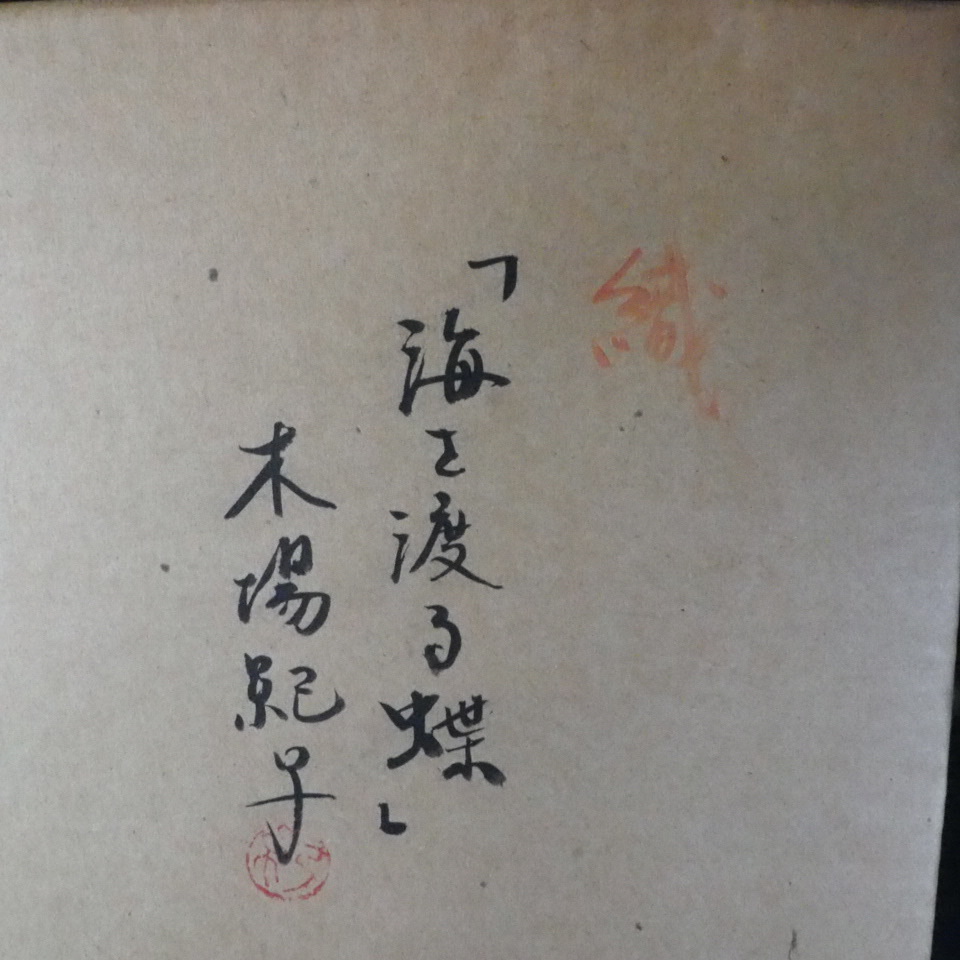 織
「海を渡る蝶」
木場紀子